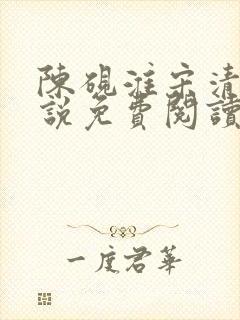 陳硯淮宋清
說免費閱讀
一度君華